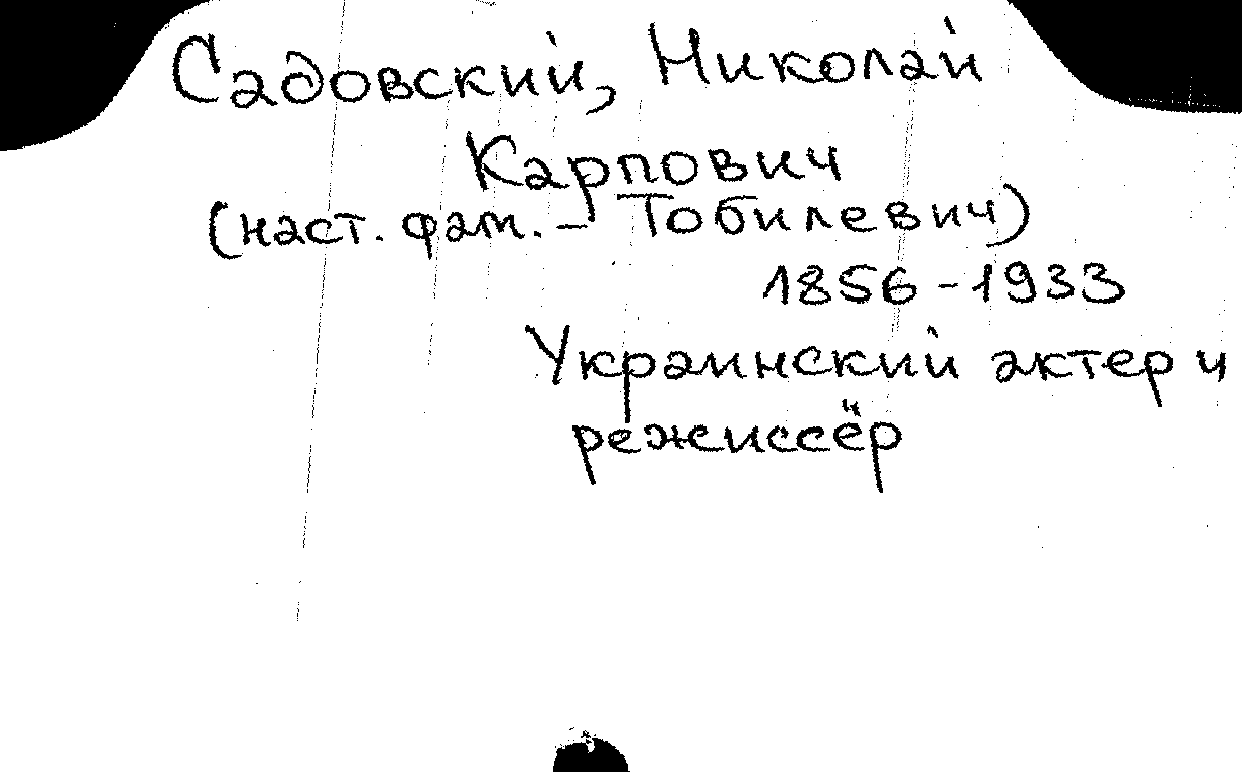 Садовский, Николай
Карпович
(наст. фам. – Тобилевич)
1856-1933
Украинский актер и
режиссёр